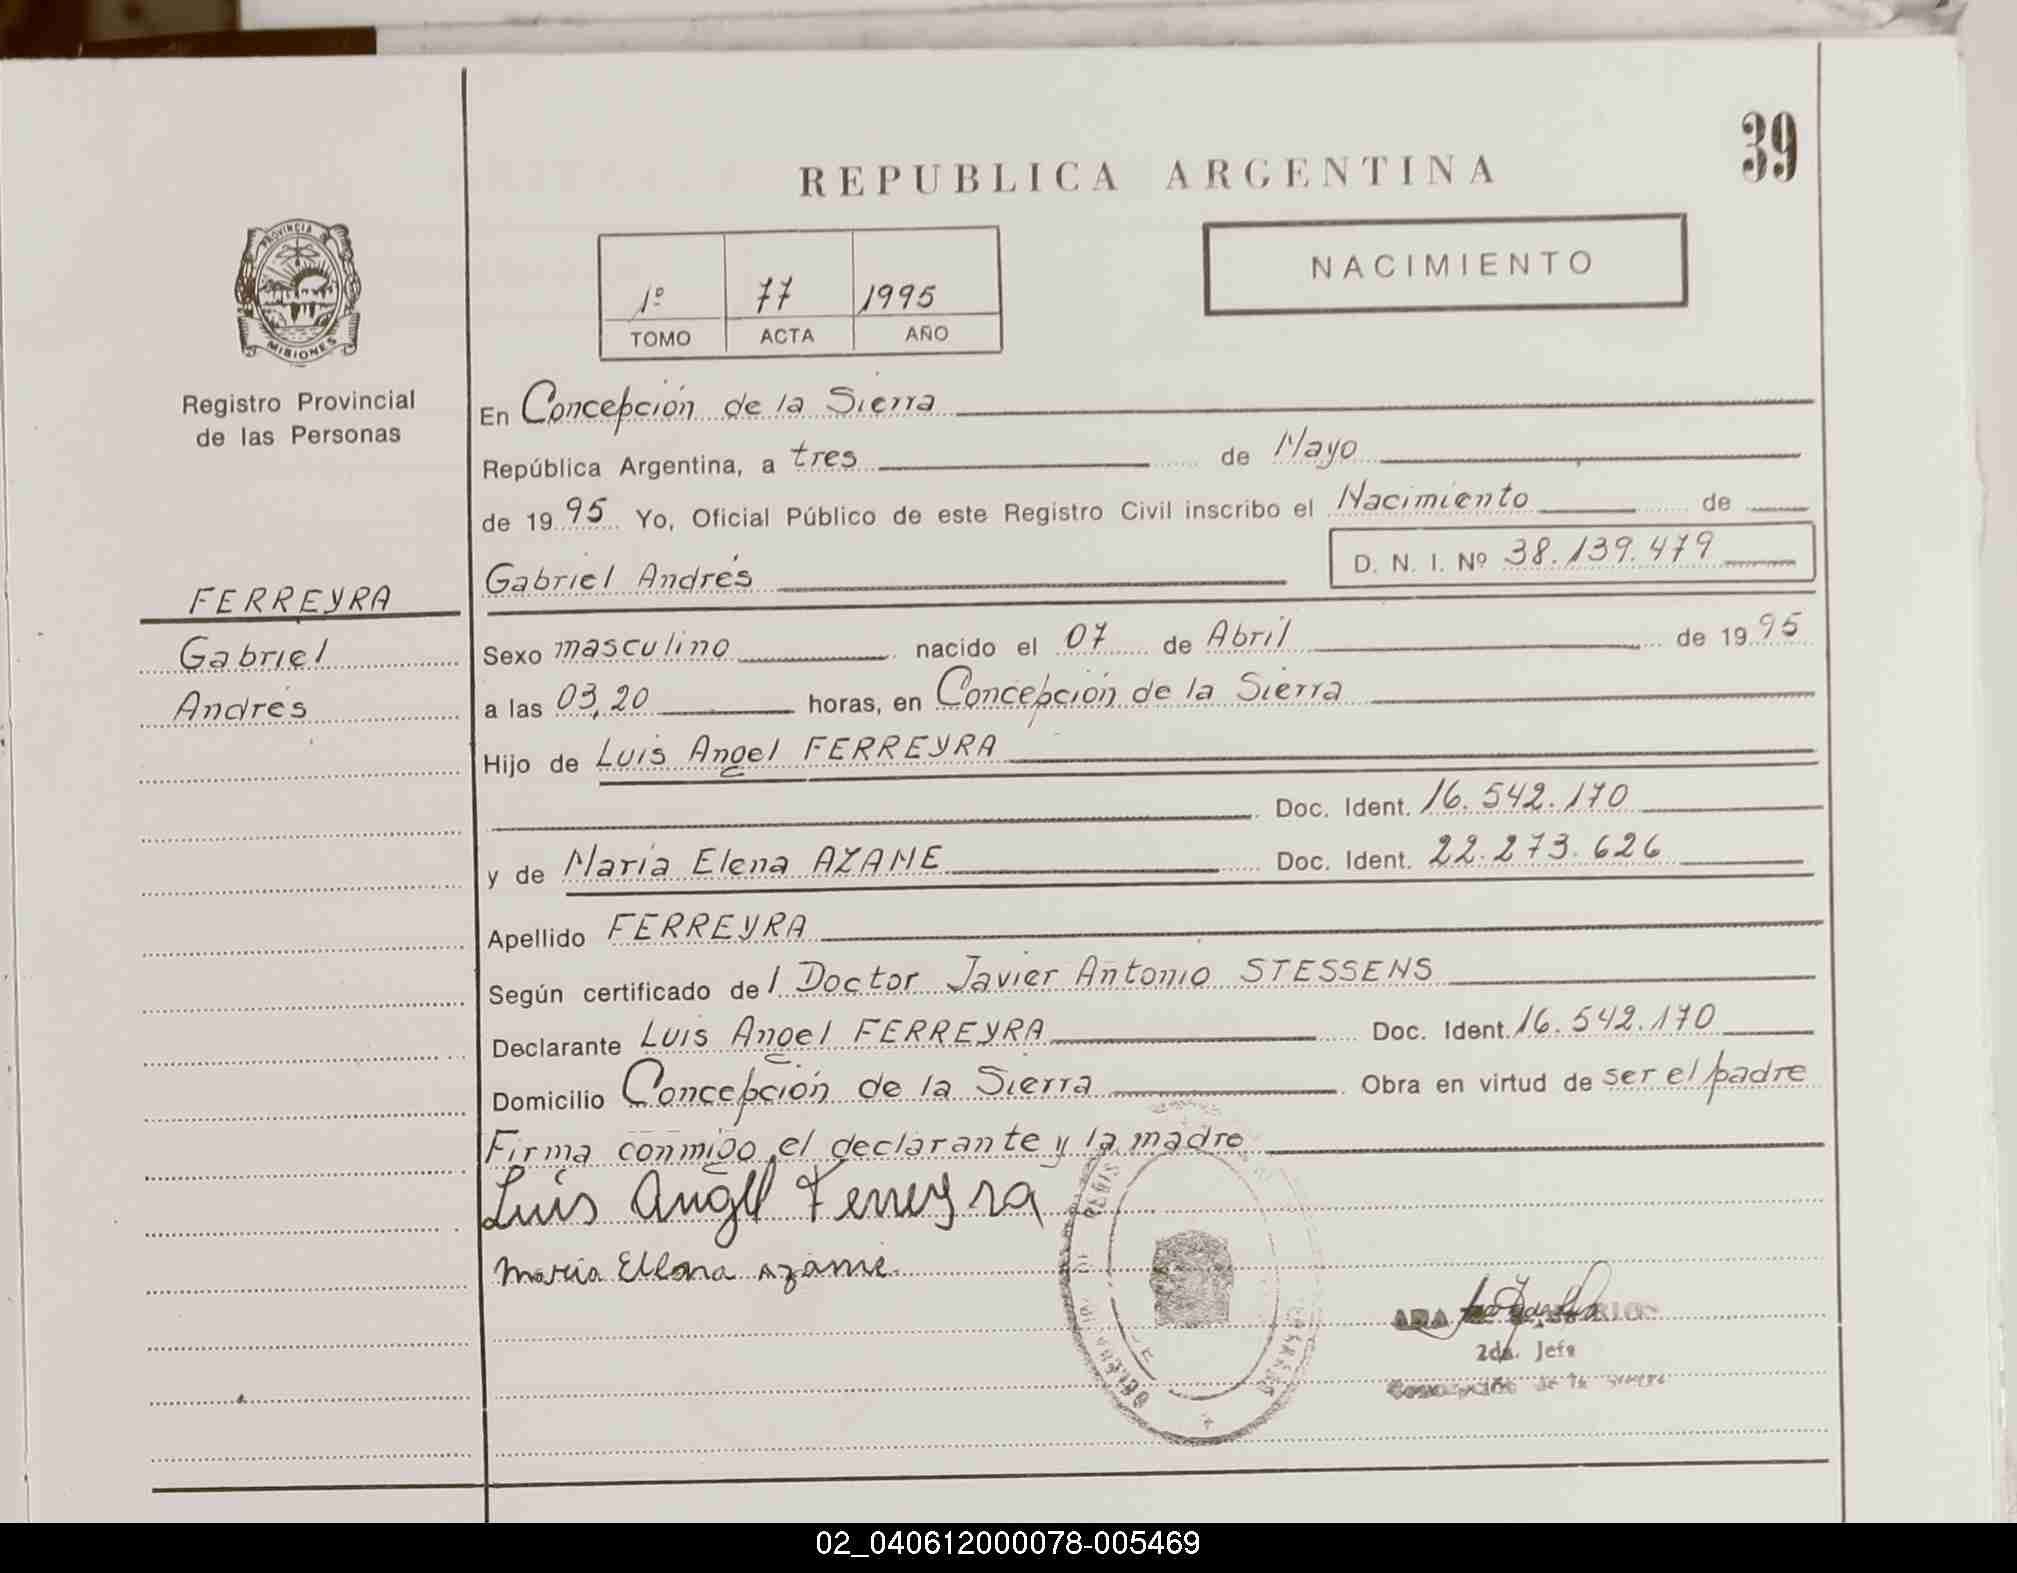 39
REPUBLICA ARGENTINA
NACIMIENTO
1º 77 1995
TOMO ACTA AÑO
PROVINCIA
MISIONES
Registro Provincial
de las Personas
FERREYRA
Gabriel
Andrés
En Concepción de la Sierra
República Argentina, a tres de Mayo
de 1995 Yo, Oficial Público de este Registro Civil inscribo el Nacimiento de
Gabriel Andrés D. N. I. Nº 38.139.479
Sexo masculino nacido el 07 de Abril de 1995
a las 03,20 horas, en Concepción de la Sierra
Hijo de Luis Angel FERREYRA
Doc. Ident. 16.542.170
y de María Elena AZAME Doc. Ident. 22.273.626
Apellido FERREYRA
Según certificado del Doctor Javier Antonio STESSENS
Declarante Luis Angel FERREYRA Doc. Ident. 16.542.170
Domicilio Concepción de la Sierra Obra en virtud de ser el padre
Firma conmigo el declarante y la madre
Luis Angel Ferreyra
Maria Ellena Azame
2da. Jefe
Concepción de la Sierra
02_040612000078-005469